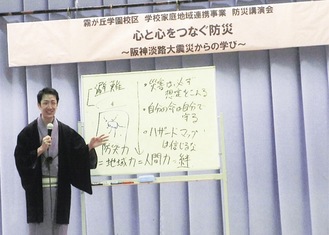 霧が丘学園校区 学校家庭地域連携事業 防災講演会
心と心をつなぐ防災
～阪神淡路大震災からの学び～
避難
・災害は必ず
想定をこえる
・自分の命は自分で
守る
・ハザードマップ
は信じるな
防災力
=地域力=人間力=絆